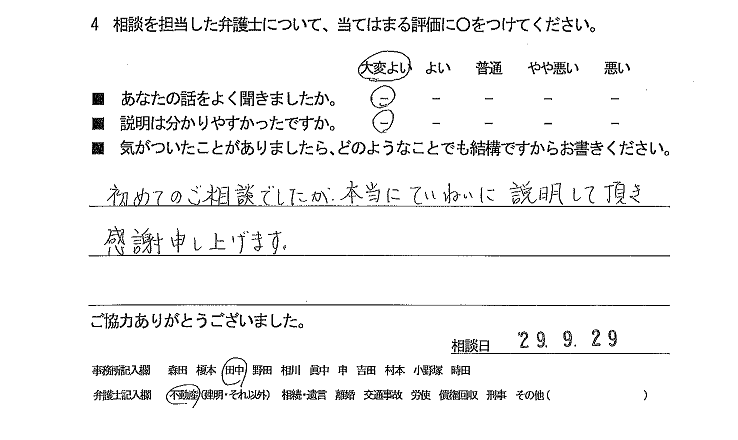 4 相談を担当した弁護士について、当てはまる評価に〇をつけてください。
大変よい よい 普通 やや悪い 悪い
■ あなたの話をよく聞きましたか。 － － － － －
■ 説明は分かりやすかったですか。 － － － － －
■ 気がついたことがありましたら、どのようなことでも結構ですからお書きください。
初めてのご相談でしたが、本当にていねいに説明して頂き
感謝申し上げます。
ご協力ありがとうございました。
相談日 '29. 9. 29
事務所記入欄 森田 榎本 田中 野田 相川 眞中 申 吉田 村本 小野塚 時田
弁護士記入欄 不動産(建明・それ以外) 相続・遺言 離婚 交通事故 労使 債権回収 刑事 その他( )